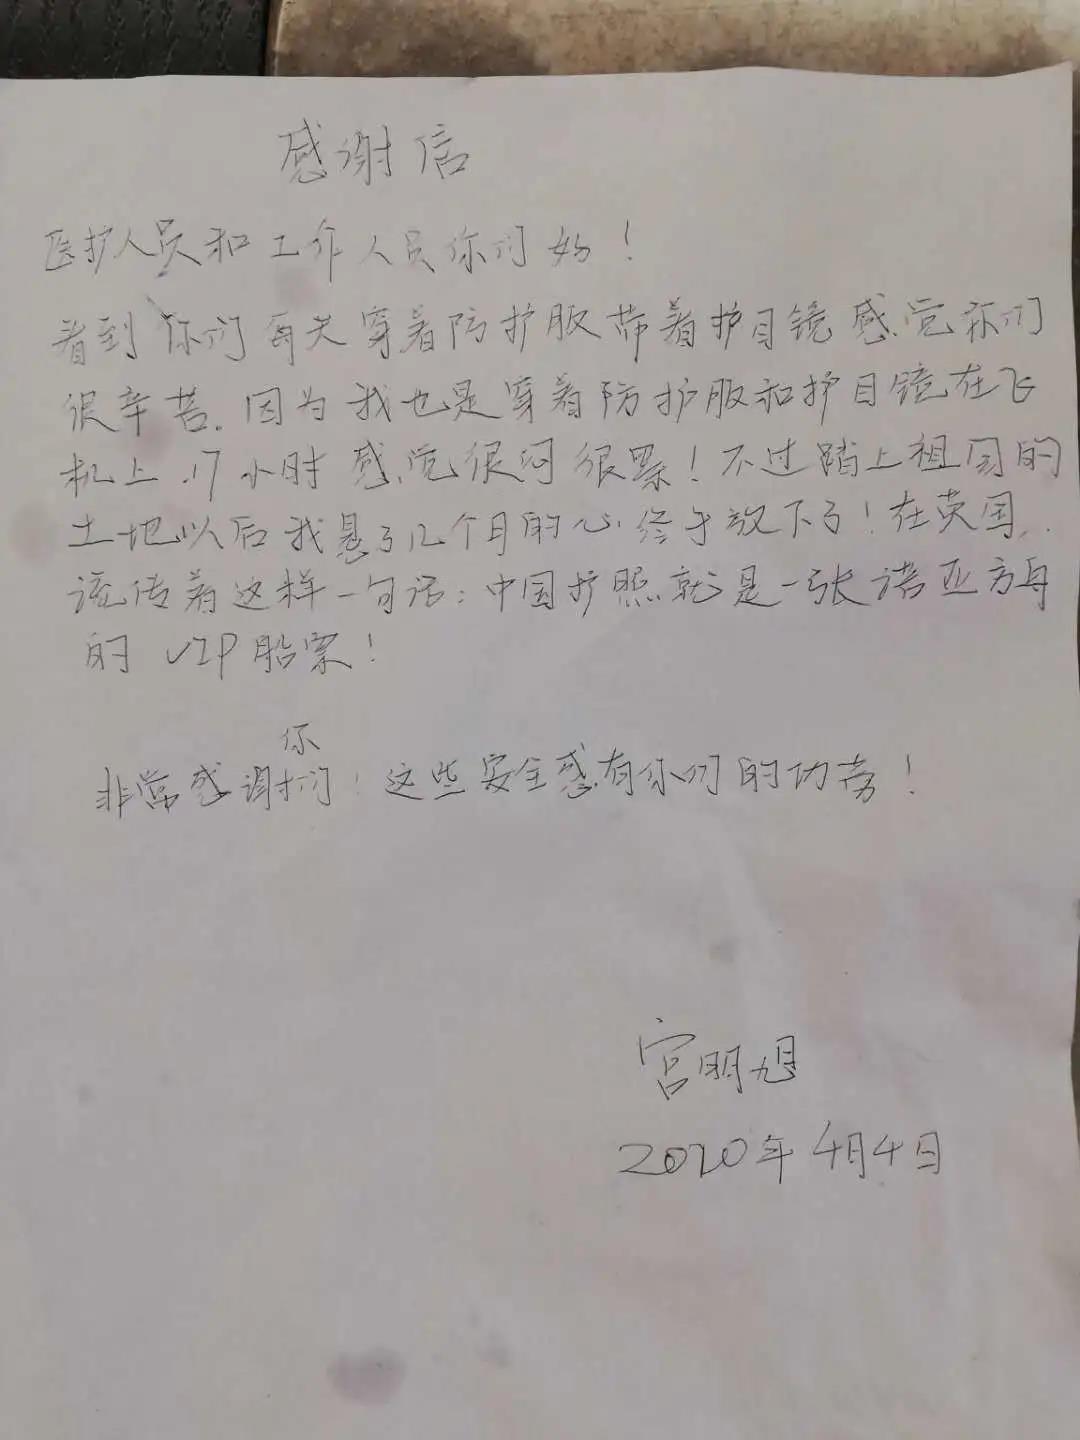 感谢信
医护人员和工作人员你们好！
看到你们每天穿着防护服带着护目镜感觉你们
很辛苦.因为我也是穿着防护服和护目镜在飞
机上.17小时感觉很闷很累！不过踏上祖国的
土地以后我悬了几个月的心终于放下了！在英国
流传着这样一句话：中国护照就是一张诺亚方舟
的VIP船票！
非常感谢你们！这些安全感有你们的功劳！
宫明旭
2020年4月4日